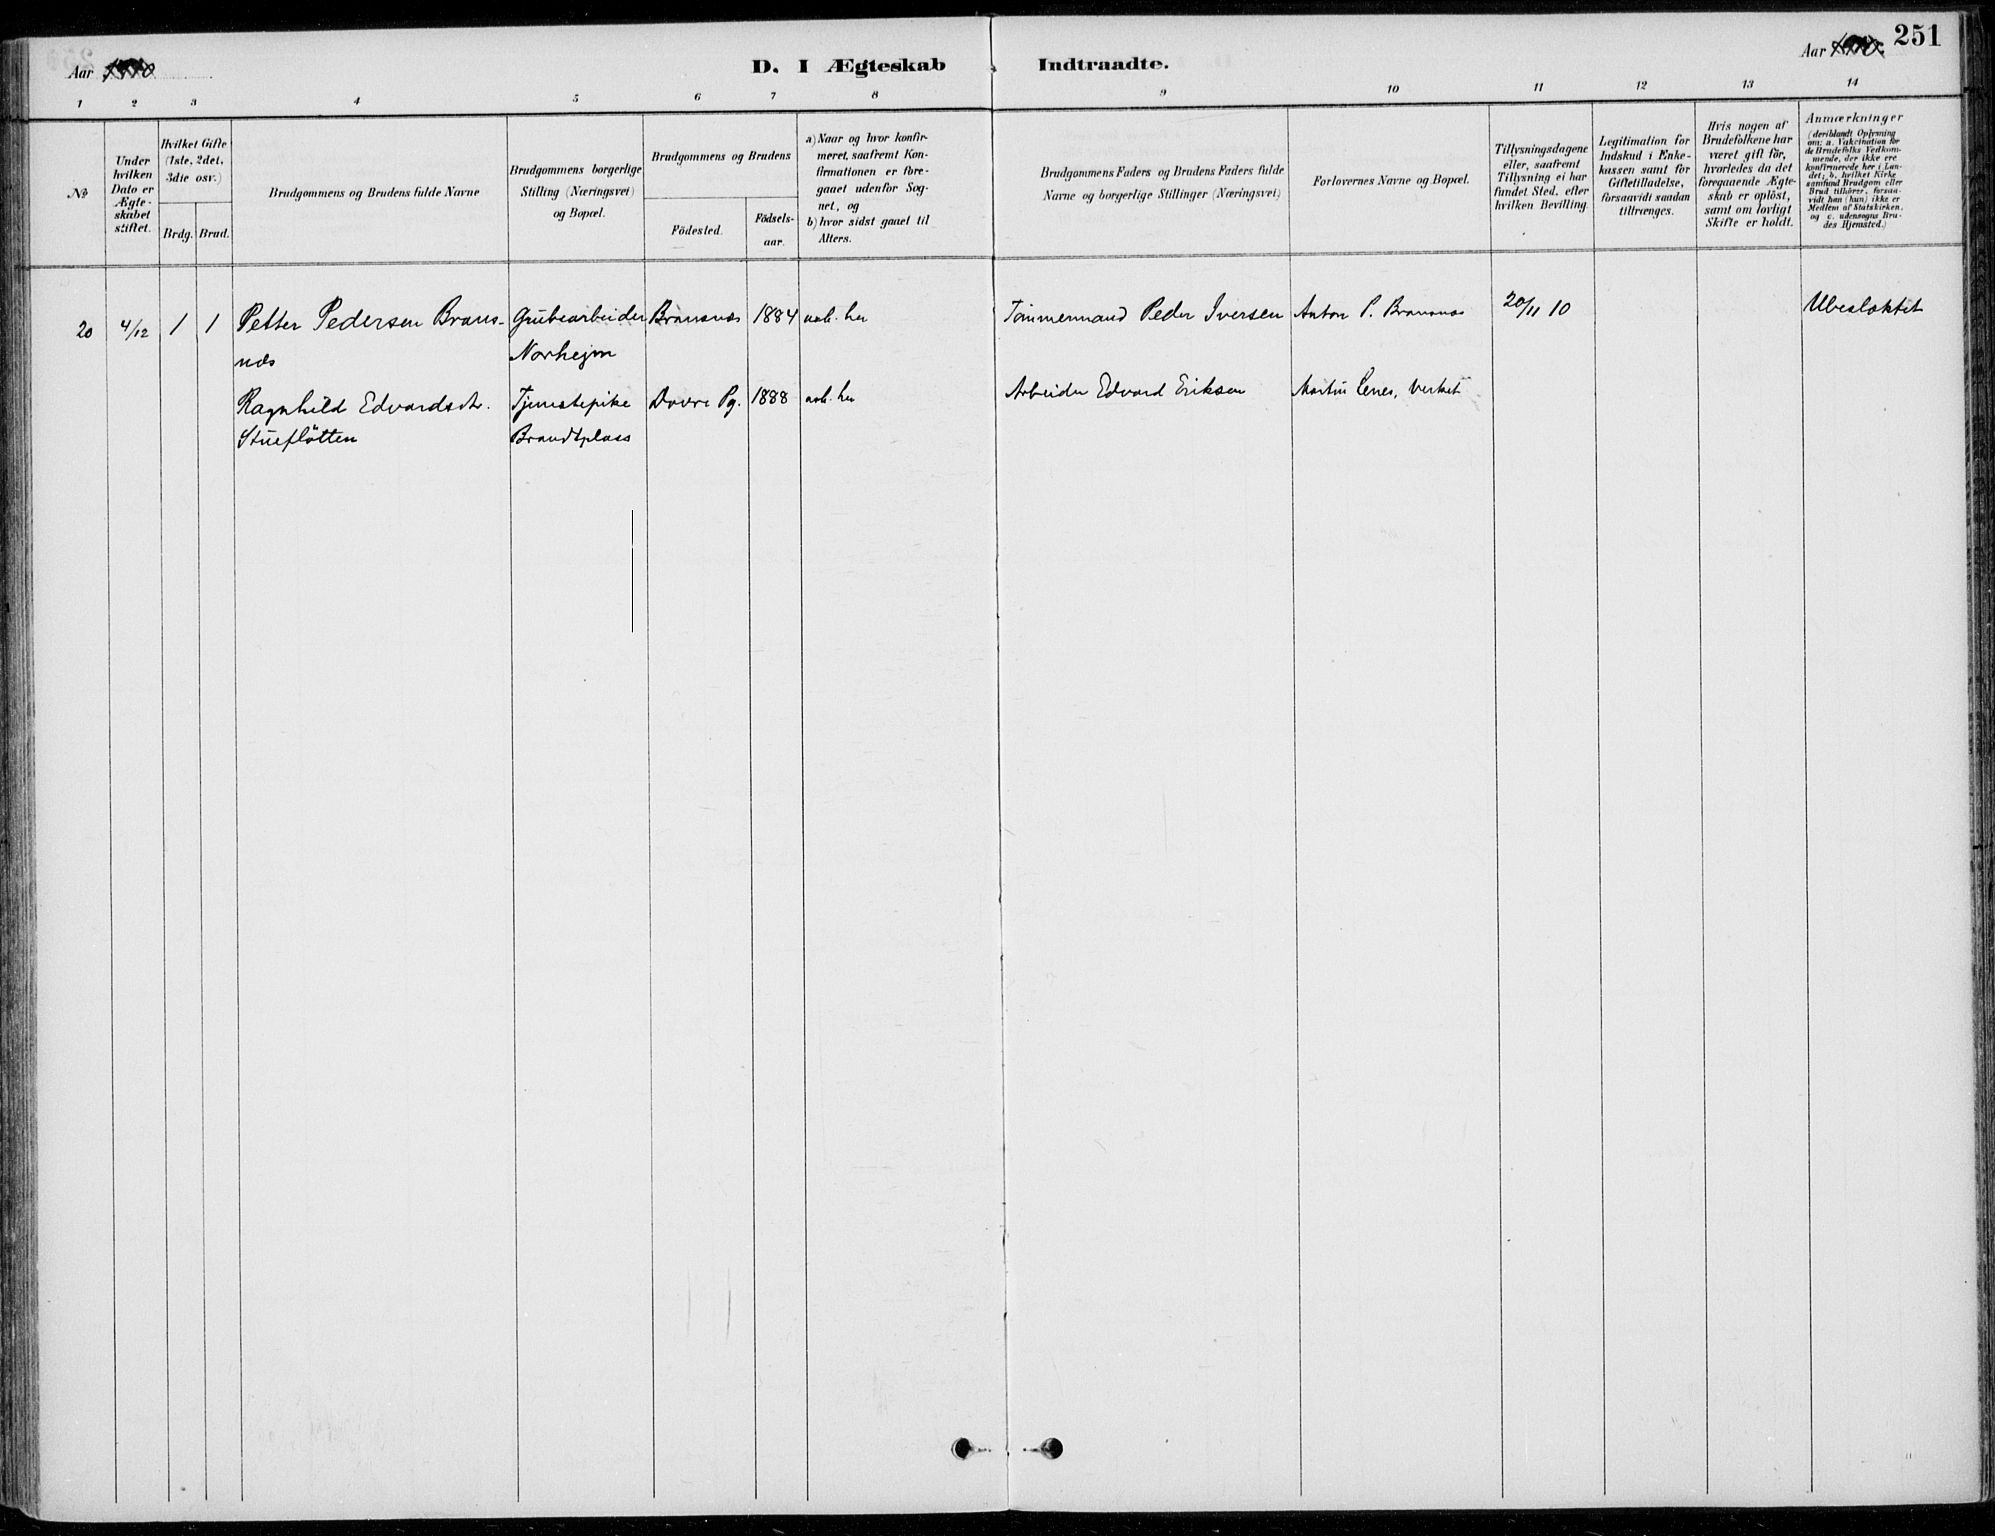 251
Aar 1910
D. I Ægteskab Indtraadte.
Aar 1910.
1 2 3 4 5 6 7 8 9 10 11 12 13 14
№
Under
hvilken
Dato er
Ægte-
skabet
stiftet.
Hvilket Gifte
(1ste, 2det,
3die osv.)
Brdg. Brud.
Brudgommens og Brudens fulde Navne
Brudgommens borgerlige
Stilling (Næringsvei)
og Bopæl.
Brudgommens og Brudens
Födested.
Födsels-
aar.
a) Naar og hvor konfir-
meret, saafremt Kon-
firmationen er fore-
gaaet udenfor Sog-
net, og
b) hvor sidst gaaet til
Alters.
Brudgommens Faders og Brudens Faders fulde
Navne og borgerlige Stillinger (Næringsvei)
Forlovernes Navne og Bopæl.
Tillysningsdagene
eller, saafremt
Tillysning ei har
fundet Sted, efter
hvilken Bevilling.
Legitimation for
Indskud i Enke-
kassen samt for
Giftetilladelse,
forsaavidt saadan
tiltrænges.
Hvis nogen af
Brudefolkene har
været gift för,
hvorledes da det
foregaaende Ægte-
skab er oplöst,
samt om lovligt
Skifte er holdt.
Anmærkninger
(deriblandt Oplysning
om: a. Vakcination for
de Brudefolks Vedkom-
mende, der ikke ere
konfirmerede her i Lan-
det; b. hvilket Kirke
samfund Brudgom eller
Brud tilhörer, forsaa-
vidt han (hun) ikke er
Medlem af Statskirken,
og c. udensogns Bru-
des Hjemsted.)
20 4/12 1 1 Petter Pedersen Brans- Grubearbeider Bransnæs 1884 her Tömmermand Peder Iversen Anton P. Bransnæs 20/11 10 Ubeslæktet
næs Norhejm
Ragnhild Edvardsdtr. Tjenestepike Dovre Pg. 1888 her Arbeider Edvard Eriksen Verket
Stueflötten Brandtplass